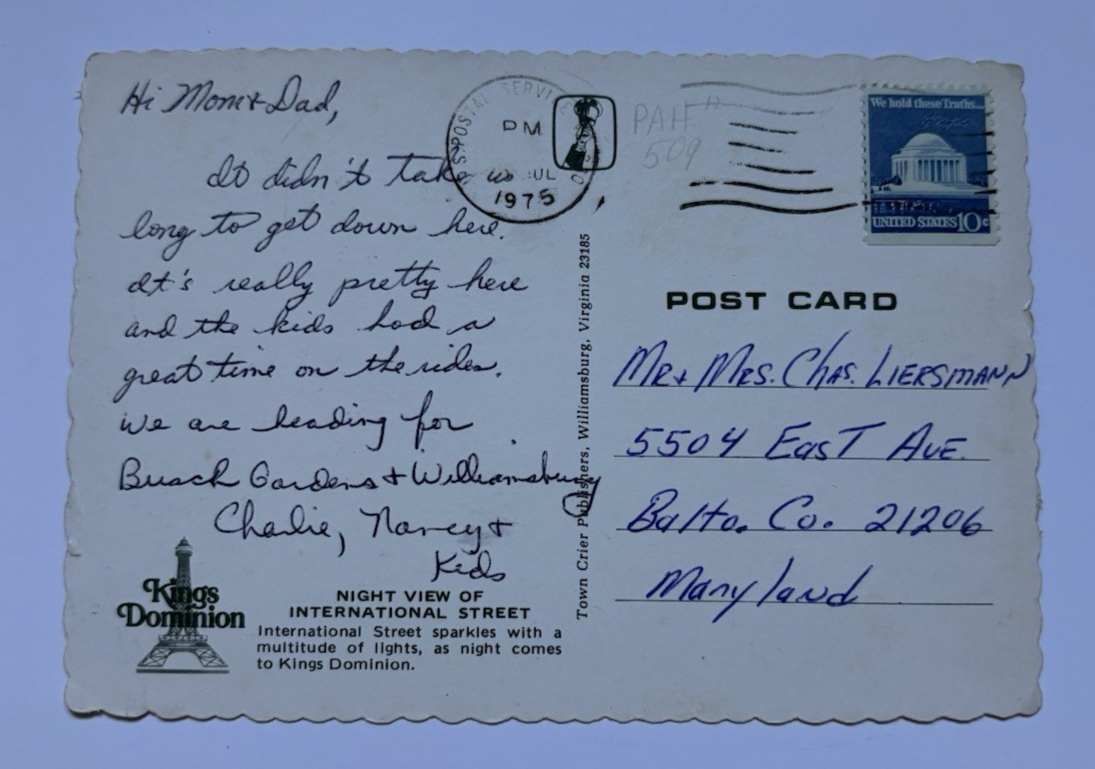 Hi Mom & Dad,
It didn't take us
long to get down here.
It's really pretty here
and the kids had a
great time on the rides.
We are heading for
Busch Gardens & Williamsburg
Charlie, Nancy &
Kids
Kings
Dominion
NIGHT VIEW OF
INTERNATIONAL STREET
International Street sparkles with a
multitude of lights, as night comes
to Kings Dominion.
Town Crier Publishers, Williamsburg, Virginia 23185
U.S. POSTAL SERVICE
PM
JUL
1975
PAH
509
We hold these Truths...
UNITED STATES 10c
POST CARD
Mr & Mrs. Chas. Liersmann
5504 East Ave.
Balto. Co. 21206
Maryland